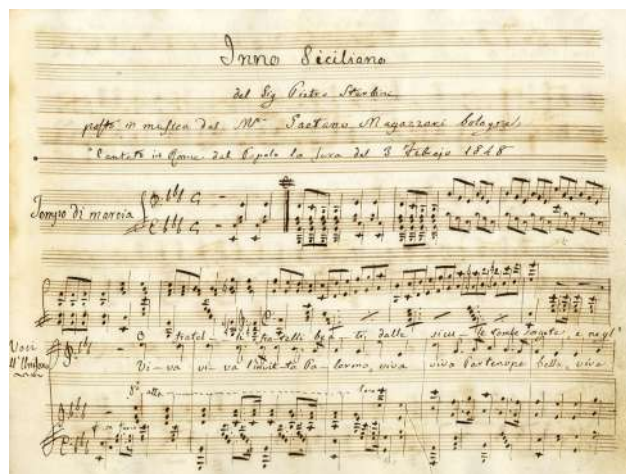 Inno Siciliano
del Sig Pietro Sterbini
posto in musica dal M.º Gaetano Magazzari bologna,
Cantato in Roma dal Popolo la sera del 3 Febrajo 1848
Tempo di marcia
O fratel - li fratelli bea - ti, dalle sicu - le tombe sorgete, e negl'
Voci
all'Unisono
Vi - va vi - va l'invitta Palermo, viva viva Partenope bella, viva
8ª alta
loco